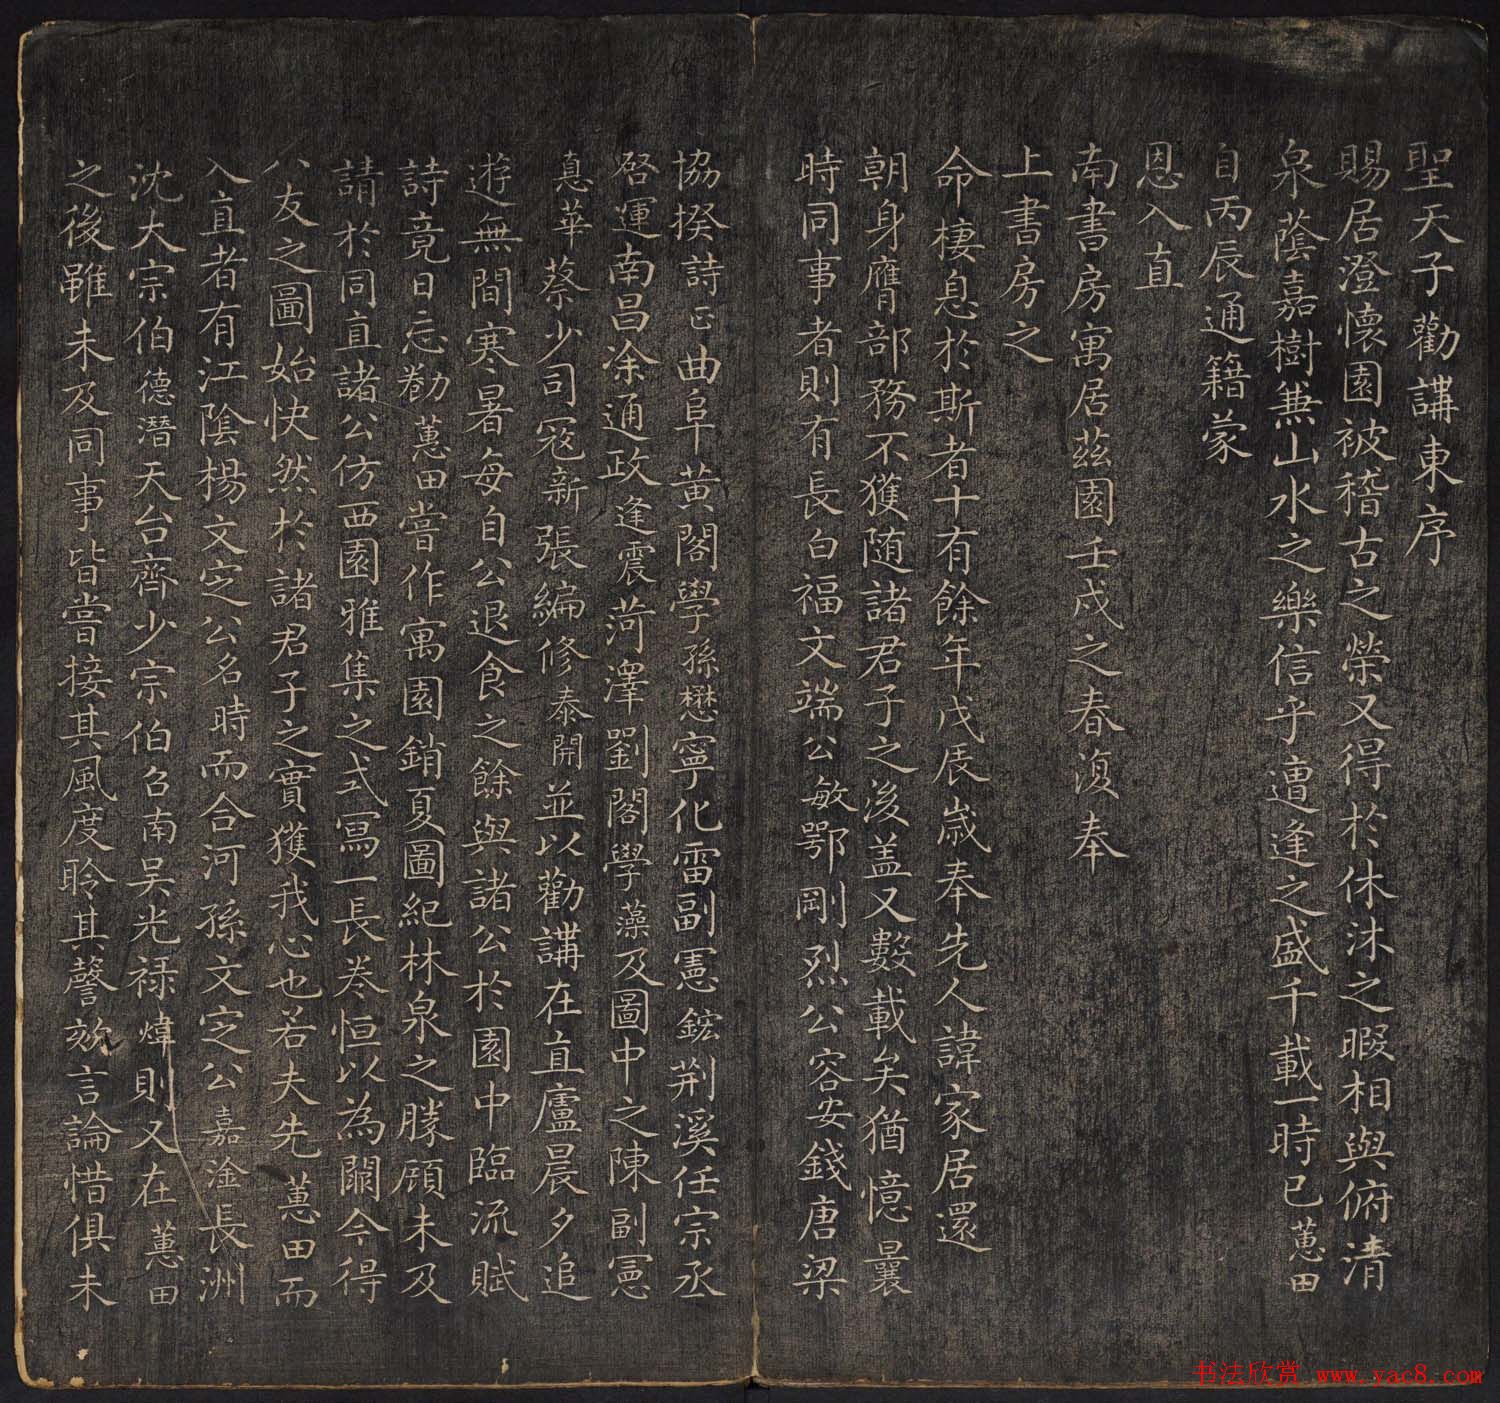 聖天子勸講東序
賜居澄懷園被稽古之榮又得於休沐之暇相與俯清
泉蔭嘉樹兼山水之樂信乎遭逢之盛千載一時已蕙田
自丙辰通籍蒙
恩入直
南書房寓居茲園壬戌之春復奉
上書房之
命棲息於斯者十有餘年戊辰歲奉先人諱家居還
朝身膺部務不獲随諸君子之後盖又數載矣猶憶曩
時同事者則有長白福文端公敏鄂剛烈公容安錢唐梁
協揆詩正曲阜黃閣學孫懋寧化雷副憲鋐荆溪任宗丞
啓運南昌涂通政逢震菏澤劉閣學藻及圖中之陳副憲
惪華蔡少司寇新張編修泰開並以勸講在直廬晨夕追
遊無間寒暑每自公退食之餘與諸公於園中臨流賦
詩竟日忘勌蕙田嘗作寓園銷夏圖紀林泉之勝頋未及
請於同直諸公仿西園雅集之式冩一長卷恒以為闕今得
八友之圖始快然於諸君子之實獲我心也若夫先蕙田而
入直者有江陰楊文定公名時而合河孫文定公嘉淦長洲
沈大宗伯德潛天台齊少宗伯召南吳光祿煒則又在蕙田
之後雖未及同事皆嘗接其風度聆其謦欬言論惜俱未
书法欣赏 www.yac8.com